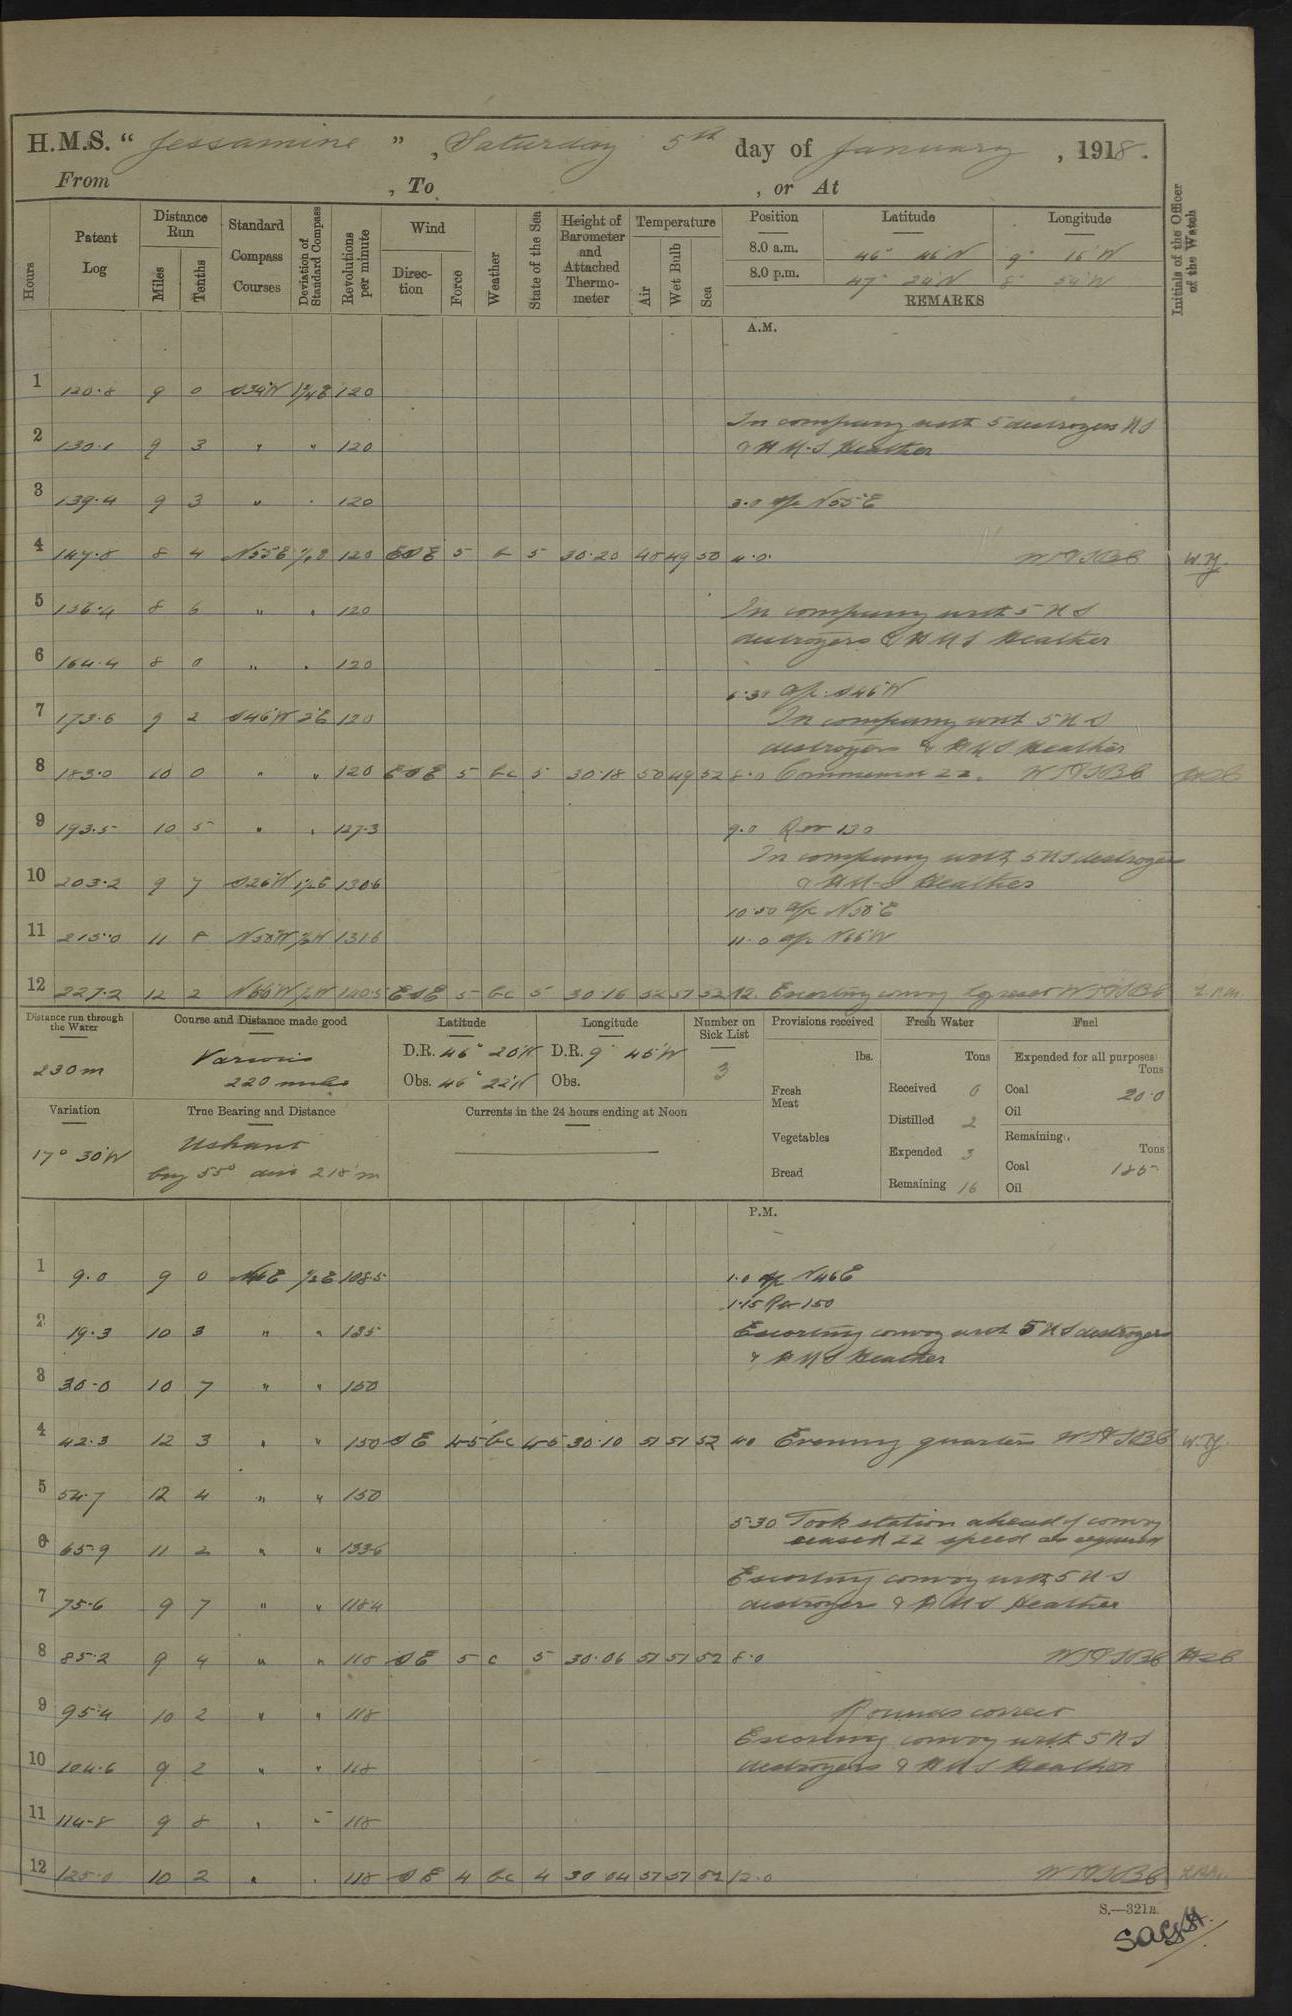 H.M.S. “ Jessamine ” , Saturday 5th day of January , 1918.
From , To , or At
Hours
Patent Log
Distance Run
Miles
Tenths
Standard Compass Courses
Deviation of Standard Compass
Revolutions per minute
Wind
Direc-tion
Force
Weather
State of the Sea
Height of Barometer and Attached Thermo-meter
Temperature
Air
Wet Bulb
Sea
Position Latitude Longitude
8.0 a.m. 46° 46'N 9° 15'W
8.0 p.m. 47° 24'N 8° 54'W
REMARKS
Initials of the Officer of the Watch
A.M.
1 120.8 9 0 S39W 1¾E 120
In company with 5 destroyers US
2 130.1 9 3 " " 120 & H.M.S Heather
3 139.4 9 3 " " 120 3.0 a/c N55°E
4 147.8 8 4 N55E 120 ESE 5 5 30.20 48 49 50 4.0
5 156.4 8 6 " " 120 In company with 5 US
destroyers & HMS Heather
6 164.4 8 0 " " 120
a/c S46W
7 173.6 9 2 S46W 2°E 120 In company with 5 US
destroyers & HMS Heather
8 183.0 10 0 " " 120 ESE 5 bc 5 30.18 50 49 52 8.0 Commenced ZZ.
9 193.5 10 5 " " 127.3 9.0 Rev 130
In company with 5 US destroyers
10 203.2 9 7 S26W 1½E 130.6 & HMS Heather
10.50 a/c N58°E
11 215.0 11 8 N58W 131.6 11.0 a/c N66W
12 227.2 12 2 N66W ½W 140.5 ESE 5 bc 5 30.16 52 51 52 12. Escorting convoy
Distance run through the Water
230m
Course and Distance made good
Various
220 miles
Latitude
D.R. 46° 20'N
Obs. 46° 22'N
Longitude
D.R. 9° 45'W
Obs.
Number on Sick List
3
Provisions received
lbs.
Fresh Meat
Vegetables
Bread
Fresh Water
Tons
Received 0
Distilled 2
Expended 3
Remaining 16
Fuel
Expended for all purposes
Tons
Coal 20.0
Oil
Remaining.
Tons
Coal 185
Oil
Variation
17° 30'W
True Bearing and Distance
Ushant
brg 55° dis 218 m
Currents in the 24 hours ending at Noon
P.M.
1 9.0 9 0 N46E ½E 108.5 1.0 a/c N46E
1.15 Rev 150
2 19.3 10 3 " " 135 Escorting convoy with 5 US destroyers
& HMS Heather
3 30.0 10 7 " " 150
4 42.3 12 3 " " 150 SE 4-5 bc 4-5 30.10 51 51 52 4.0 Evening quarters
5 54.7 12 4 " " 150
5.30 Took station ahead of convoy
6 65.9 11 2 " " 133.6 ceased ZZ speed as required
Escorting convoy with 5 US
7 75.6 9 7 " " 118.4 destroyers & HMS Heather
8 85.2 9 4 " " 118 SE 5 c 5 30.06 51 51 52 8.0
9 95.4 10 2 " " 118 Rounds correct
Escorting convoy with 5 US
10 104.6 9 2 " " 118 destroyers & HMS Heather
11 114.8 9 8 " " 118
12 125.0 10 2 " " 118 SE 4 bc 4 30.04 51 51 52 12.0
S.—321B.